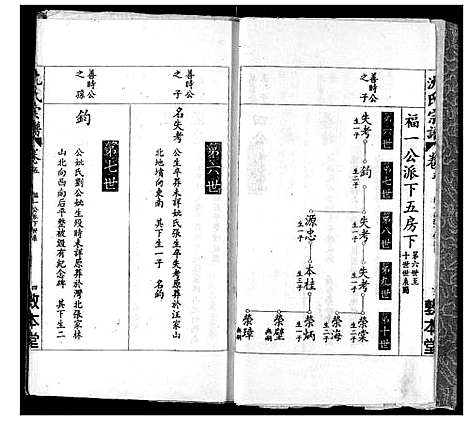 沈氏宗譜
卷五
敦本堂
福一公派下五房下
第六世至
十世世系圖
第六世
第七世
第八世
第九世
第十世
失考
生一子
鈞
生二子
失考
生一子
失考
生二子
榮棠
生二子
榮海
生二子
源忠
生一子
本桂
榮炳
生一子
榮璧
榮璋
第六世
善時公
之子
名失考
公生卒葬未詳妣氏張生卒失考原葬於汪家山
北地墳向東南　其下生一子　名鈞
第七世
善時公
之孫
鈞
公妣氏劉公妣生歿時未詳原葬於灣北張家林
山北向西向后平整被毀有紀念碑　其下生二
沈氏宗譜
卷五
四
敦本堂